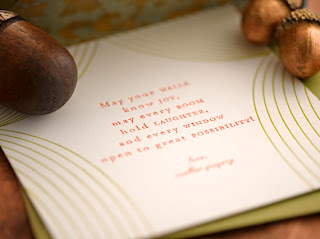 May your WALLS
know JOY,
may every ROOM
hold LAUGHTER,
and every WINDOW
open to great POSSIBILITY!
love,